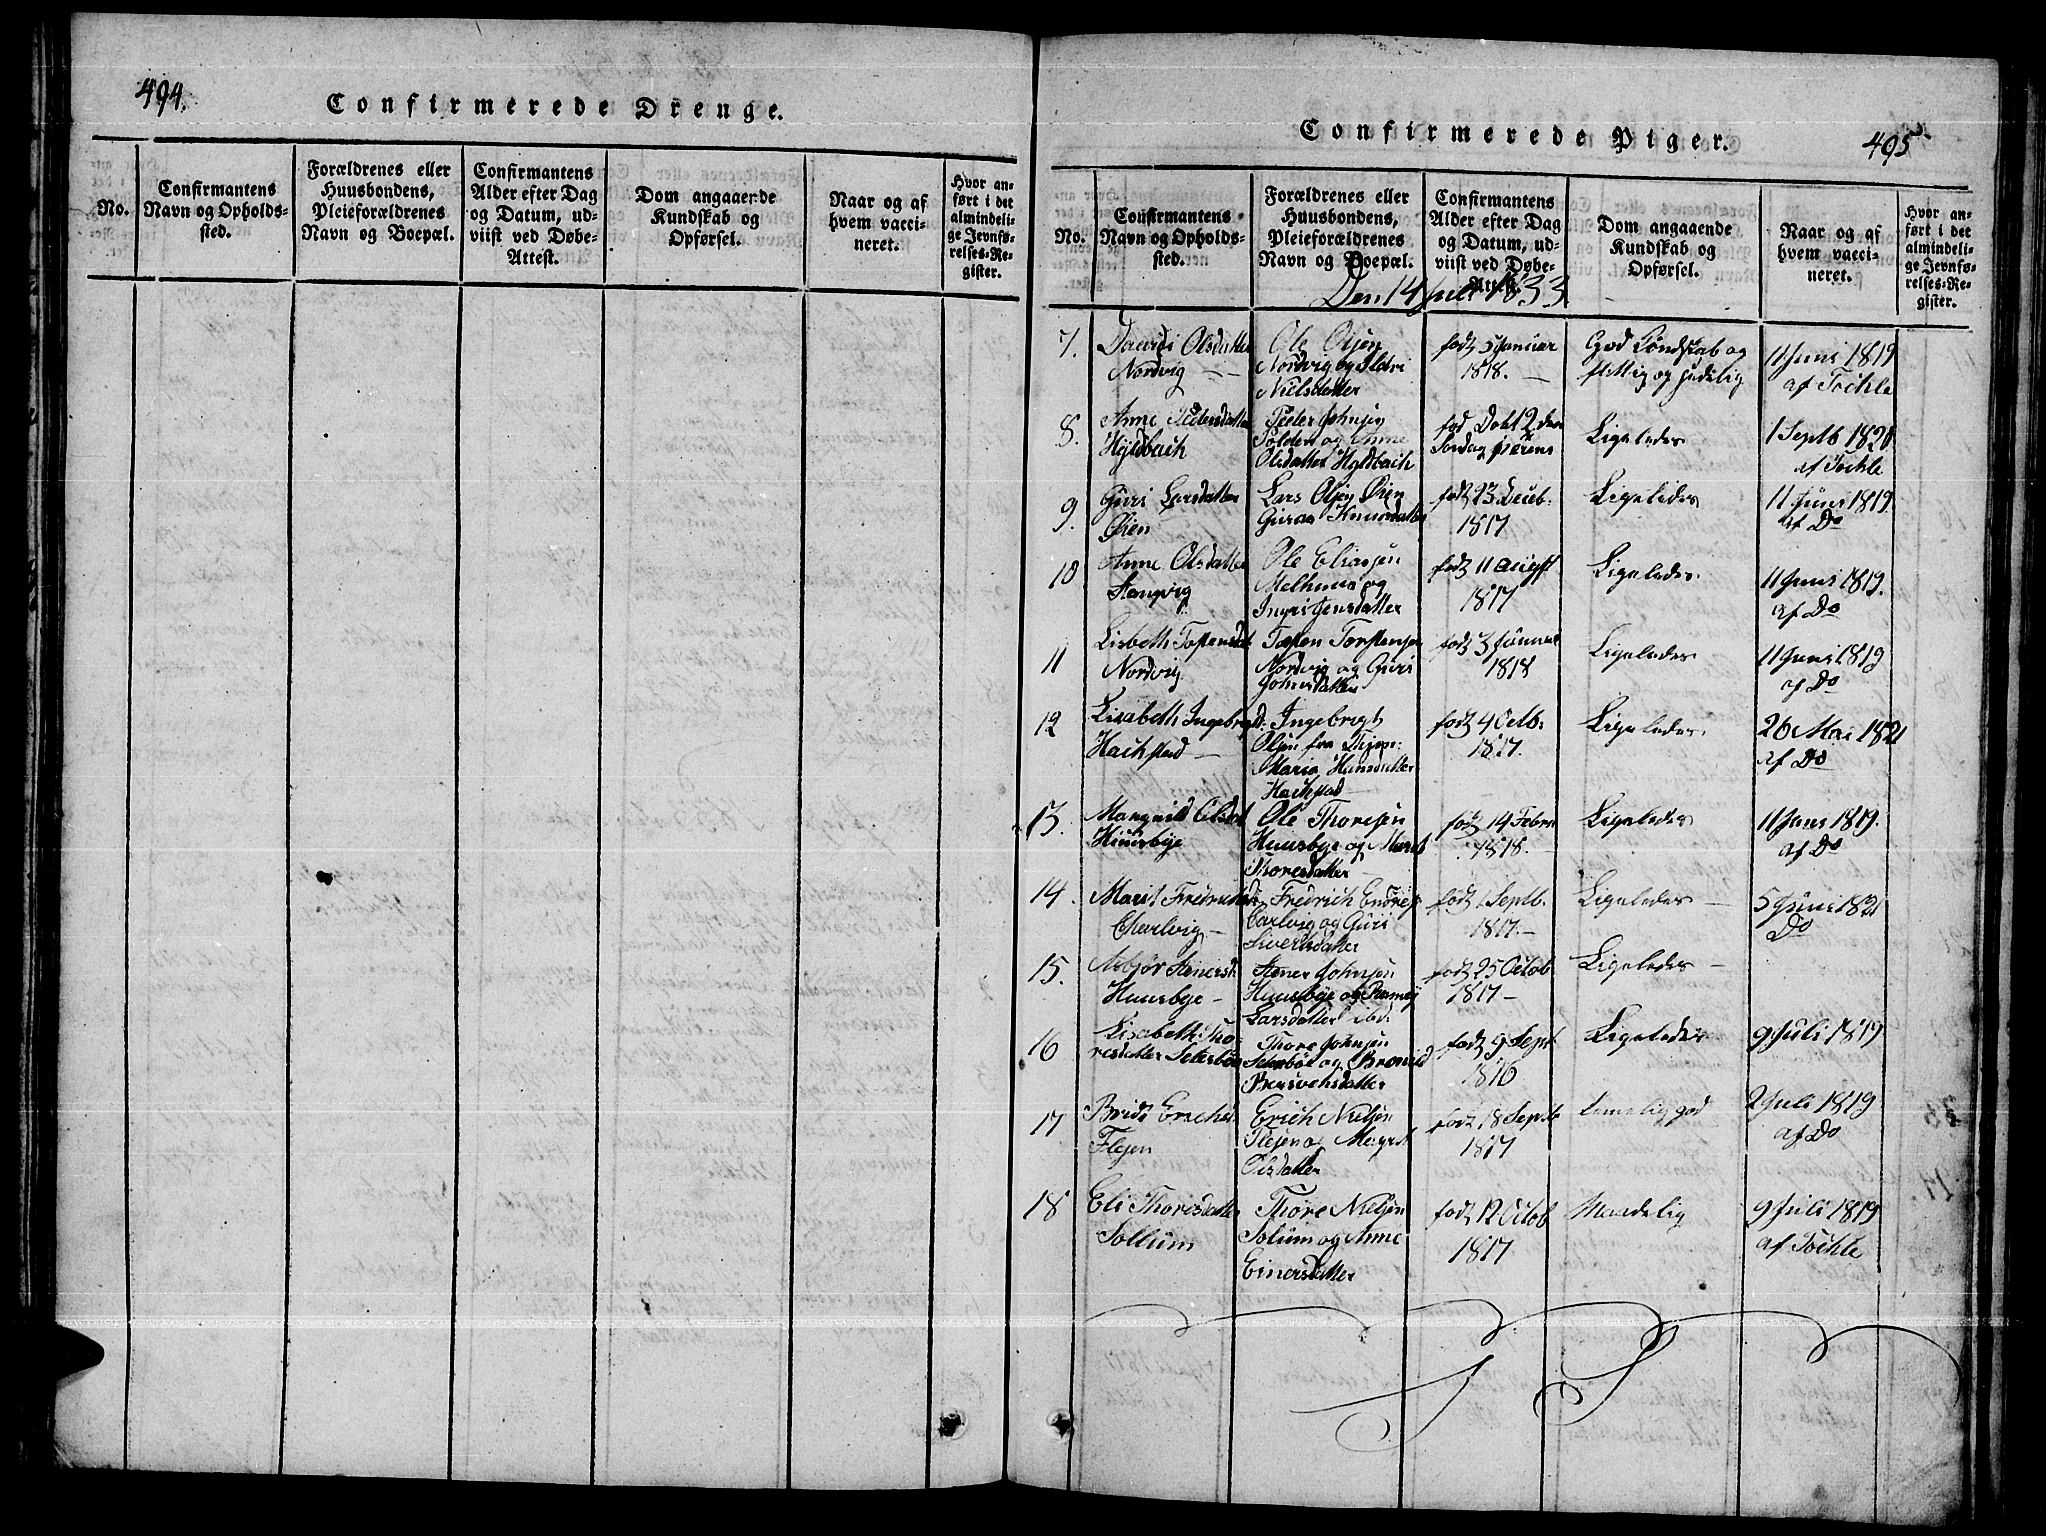 494.
Confirmerede Drenge.
No.
Confirmantens
Navn og Opholds-
sted.
Forældrenes eller
Huusbondens,
Pleieforældrenes
Navn og Boepæl.
Confirmantens
Alder efter Dag
og Datum, ud-
viist ved Døbe-
Attest.
Dom angaaende
Kundskab og
Opførsel.
Naar og af
hvem vacci-
neret.
Hvor an-
ført i det
almindeli-
ge Jevnfø-
relses-Re-
gister.
Confirmerede Piger.
495
No.
Confirmantens
Navn og Opholds-
sted.
Forældrenes eller
Huusbondens,
Pleieforældrenes
Navn og Boepæl.
Confirmantens
Alder efter Dag
og Datum, ud-
viist ved Døbe-
Attest.
Dom angaaende
Kundskab og
Opførsel.
Naar og af
hvem vacci-
neret.
Hvor an-
ført i det
almindeli-
ge Jevnfø-
relses-Re-
gister.
Den 14 Juli 1833
7.
Olsdatter
Nordvig
Ole Olsen
Nordvig og Ildri
Nielsdatter
født 5 Januar
1818.
God Kundskab og
flittig og sædelig
11 Juni 1819
af Tøchle
8.
Anne Pedersdatter
Hyldbach
Peder Johnsen
og Anne
Olsdatter Hyldbach
Ligeledes
1 Septb 1820
af Tøchle
9.
Guri Larsdatter
Øien
Lars Olsen Øien
Knudsdatter
født 23 Decb.
1817
Ligeledes
11 Juni 1819.
af Do
10
Anne Olsdatter
Stangvig
Ole Eliasen
Melhuus og
Ingri Jensdatter
født 11 August
1817
Ligeledes
11 Juni 1819.
af Do
11
Lisbeth
Nordvig
Torstensen
Nordvig og Guri
Johnsdatter
født 3 Januar
1818
Ligeledes
11 Juni 1819
af Do
12
Lisabeth Ingebrigtsd:
Hachstad
Ingebrigt
Olsen fra
Maria Hansdatter
Hachstad
født 4 Octb.
1817.
Ligeledes
26 Mai 1821
af Do
13.
Olsdat
Huusbye
Ole Thoresen
Huusbye og Marit
Thoresdatter
født 14 Febr
1818.
Ligeledes
11 Juni 1819.
af Do
14.
Marit
Charlvig
Fredrich
Carlvig og Guri
Siversdatter
født 1 Septb.
1817.
Ligeledes
5 Juni 1821
Do
15.
Huusbye
Stener Johnsen
Huusbye og
Larsdatter ibd.
født 25 Octob
1817
Ligeledes
16
Lisabeth Tho-
resdatter Seterbøe
Thore Johnsen
Seterbøe og
født 9 Sept
1816
Ligeledes
9 Juli 1819
17
Erichsd.
Flesen
Erich Nielsen
Flesen og
Olsdatter
født 18 Septb
1817
temelig god
2 Juli 1819
af Do
18
Eli Thoresdatter
Sollum
Thore Nielsen
Solum og Anne
Einersdatter
født 12 Octob
1817
Maadelig
9 Juli 1819
af Tøchle